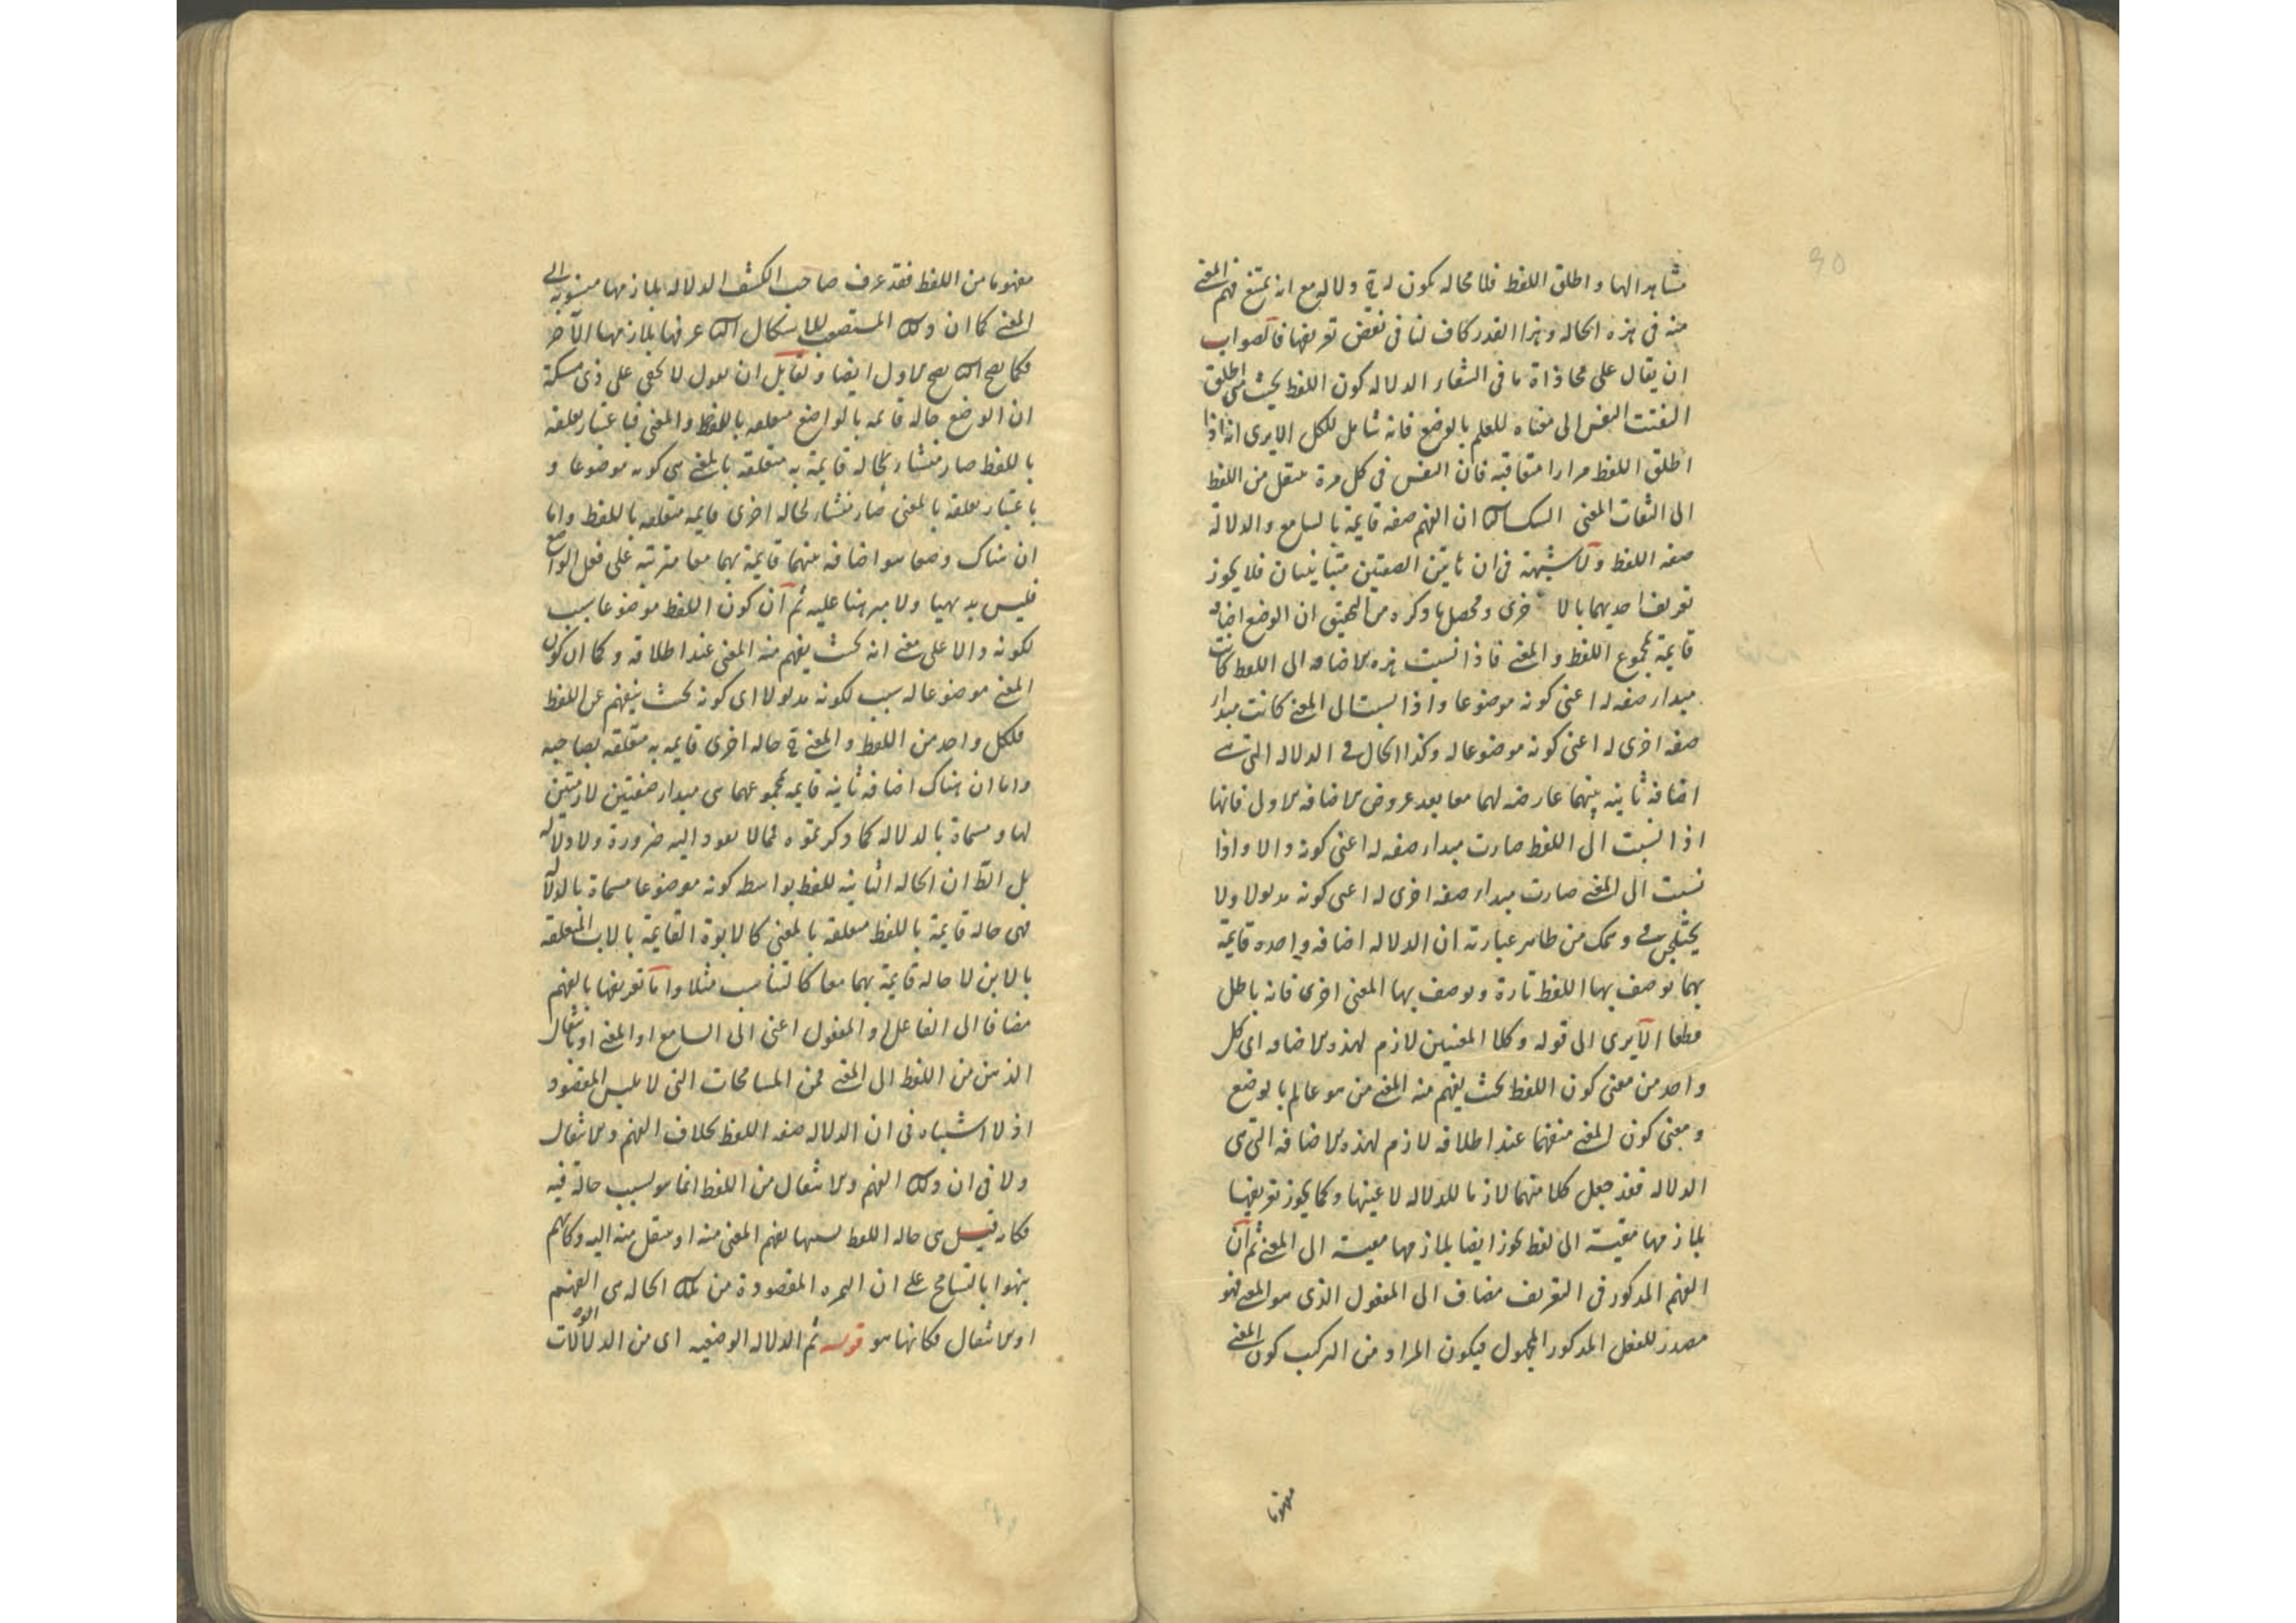 مشاهدا لها واطلق اللفظ فلا محالة يكون له ح دلالة مع انه يمتنع فهم المعنى
منه فى هذه الحالة وهذا القدر كاف لنا فى نقض تعريفها فالصواب
ان يقال على محاذاة ما فى الشفاء الدلالة كون اللفظ بحيث متى اطلق
التفتت النفس الى معناه للعلم بالوضع فانه شامل للكل الا يرى انه اذا
اطلق اللفظ مرارا متعاقبة فان النفس فى كل مرة ينتقل من اللفظ
الى التفات المعنى ان الفهم صفة قايمة بالسامع والدلالة
صفة اللفظ ولا شبهة فى ان هاتين الصفتين متباينتان فلا يجوز
تعريف احديهما بالاخرى ومحصل ما ذكره من التحقيق ان الوضع اضافة
قايمة بمجموع اللفظ والمعنى فاذا نسبت هذه الاضافة الى اللفظ كانت
مبداء صفة له اعنى كونه موضوعا واذا نسبت الى المعنى كانت مبداء
صفة اخرى له اعنى كونه موضوعا له وكذا الحال فى الدلالة التى هى
اضافة ثانية بينهما عارضة لهما معا بعد عروض الاضافة الاولى فانها
اذا نسبت الى اللفظ صارت مبداء صفة له اعنى كونه دالا واذا
نسبت الى المعنى صارت مبداء صفة اخرى له اعنى كونه مدلولا ولا
يختلجن فى وهمك من ظاهر عبارته ان الدلالة اضافة واحدة قايمة
بهما يوصف بها اللفظ تارة ويوصف بها المعنى اخرى فانه باطل
قطعا الا يرى الى قوله وكلا المعنيين لازم لهذه الاضافة اى كل
واحد من معنى كون اللفظ بحيث يفهم منه المعنى من هو عالم بالوضع
ومعنى كون المعنى منفهما عند اطلاقه لازم لهذه الاضافة التى هى
الدلالة فقد جعل كلا منهما لازما للدلالة لا عينها وكما يجوز تعريفها
بلازمها مقيسة الى لفظ يجوز ايضا بلازمها مقيسة الى المعنى ثم ان
الفهم المذكور فى التعريف مضاف الى المفعول الذى هو المعنى فهو
مصدر للفعل المذكور المجهول فيكون المراد من التركيب كون المعنى
مفهوما
مفهوما من اللفظ فقد عرف صاحب الكشف الدلالة بلازمها منسوبة الى
المعنى كما ان ذلك المستصعب للاشكال عرفها بلازمها الآخر
فكما يصح يصح الاول ايضا ولقايل ان يقول لا يخفى على ذى مسكة
ان الوضع حالة قايمة بالواضع متعلقة باللفظ والمعنى فباعتبار تعلقه
باللفظ صار منشاء لحالة قايمة به متعلقة بالمعنى هى كونه موضوعا و
باعتبار تعلقه بالمعنى صار منشاء لحالة اخرى قايمة متعلقة باللفظ واما
ان هناك وضعا هو اضافة بينهما قايمة بهما معا مترتبة على فعل الواضع
فليس بديهيا ولا مبرهنا عليه ثم ان كون اللفظ موضوعا سبب
لكونه دالا على معنى انه بحيث يفهم منه المعنى عند اطلاقه وكما ان كون
المعنى موضوعا له سبب لكونه مدلولا اى كونه بحيث ينفهم عن اللفظ
فلكل واحد من اللفظ والمعنى ح حالة اخرى قايمة به متعلقة بصاحبه
واما ان هناك اضافة ثانية قايمة بمجموعهما هى مبداء صفتين لازمتين
لها ومسماة بالدلالة كما ذكرتموه فمما لا يعود اليه ضرورة ولا دلالة
بل الظ ان الحالة الثانية للفظ بواسطة كونه موضوعا مسماة بالدلالة
فهى حالة قايمة باللفظ متعلقة بالمعنى كالابوة القايمة بالاب المتعلقة
بالابن لا حالة قايمة بهما معا كالتناسب مثلا واما تعريفها بالفهم
مضافا الى الفاعل او المفعول اعنى الى السامع او المعنى او بانتقال
الذهن من اللفظ الى المعنى فمن المسامحات التى لا يلبس المقصود
اذ لا اشتباه فى ان الدلالة صفة اللفظ بخلاف الفهم والانتقال
ولا فى ان ذلك الفهم والانتقال من اللفظ انما هو بسبب حالة فيه
فكانه قيل هى حالة اللفظ بسببها يفهم المعنى منه او ينتقل منه اليه وكانهم
نبهوا بالتسامح على ان الثمرة المقصودة من تلك الحالة هى الفهم
او الانتقال فكانها هو قوله ثم الدلالة الوضعية اى من الدلالات